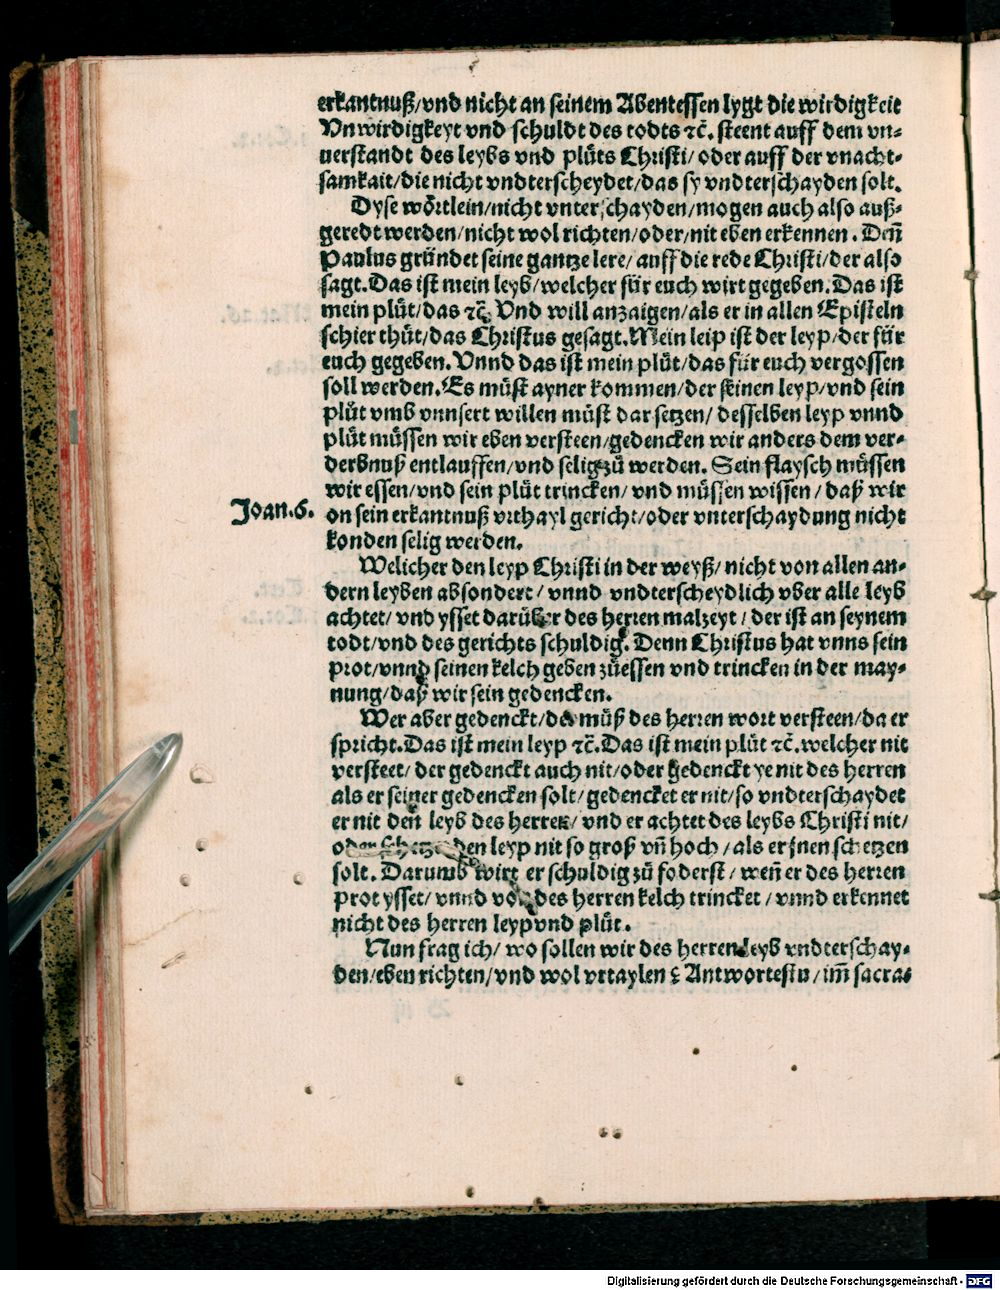 erkantnuß/vnd nicht an seinem Abentessen lygt die wirdigkeit
Vnwirdigkeyt vnd schuldt des todts ⁊c̄. steent auff dem vn⸗
uerstandt des leybs vnd plůts Christi/ oder auff der vnacht⸗
samkait/die nicht vndterscheydet/das sy vndterschayden solt.
Dyse wörtlein/nicht vnterschayden/mogen auch also auß⸗
geredt werden/nicht wol richten/oder/nit eben erkennen. Deñ
Paulus gründet seine gantze lere/ auff die rede Christi/der also
sagt.Das ist mein leyb/welcher für euch wirt gegeben.Das ist
mein plůt/das ⁊c̄. Vnd will anzaigen/als er in allen Episteln
schier thůt/das Christus gesagt.Mein leip ist der leyp/der für
euch gegeben.Vnnd das ist mein plůt/das für euch vergossen
soll werden.Es můst ayner kommen/der seinen leyp/vnd sein
plůt vmb vnnsert willen můst darsetzen/ desselben leyp vnnd
plůt müssen wir eben versteen/gedencken wir anders dem ver⸗
derbnuß entlauffen/vnd selig zů werden. Sein flaysch müssen
wir essen/vnd sein plůt trincken/ vnd müssen wissen/ daß wir
Joan.6.
on sein erkantnuß vrthayl gericht/oder vnterschaydung nicht
konden selig werden.
Welicher den leyp Christi in der weyß/ nicht von allen an⸗
dern leyben absondert/ vnnd vndterscheydlich vber alle leyb
achtet/ vnd ysset darüber des herren malzeyt/ der ist an seynem
todt/vnd des gerichts schuldig. Denn Christus hat vnns sein
prot/vnnd seinen kelch geben zůessen vnd trincken in der may⸗
nung/daß wir sein gedencken.
Wer aber gedenckt/da můß des herren wort versteen/da er
spricht.Das ist mein leyp ⁊c̄.Das ist mein plůt ⁊c̄.welcher nit
versteet/ der gedenckt auch nit/oder gedenckt ye nit des herren
als er seiner gedencken solt/ gedencket er nit/so vndterschaydet
er nit den leyb des herren/ vnd er achtet des leybs Christi nit/
oder schetzet den leyp nit so groß vñ hoch/als er jnen schetzen
solt. Darumb wirt er schuldig zů foderst/ weñ er des herren
prot ysset/ vnnd von des herren kelch trincket/ vnnd erkennet
nicht des herren leyp vnd plůt.
Nun frag ich/ wo sollen wir des herren leyb vndterschay⸗
den/eben richten/vnd wol vrtaylen? Antwortestu/im̃ sacra⸗
Digitalisierung gefördert durch die Deutsche Forschungsgemeinschaft - DFG